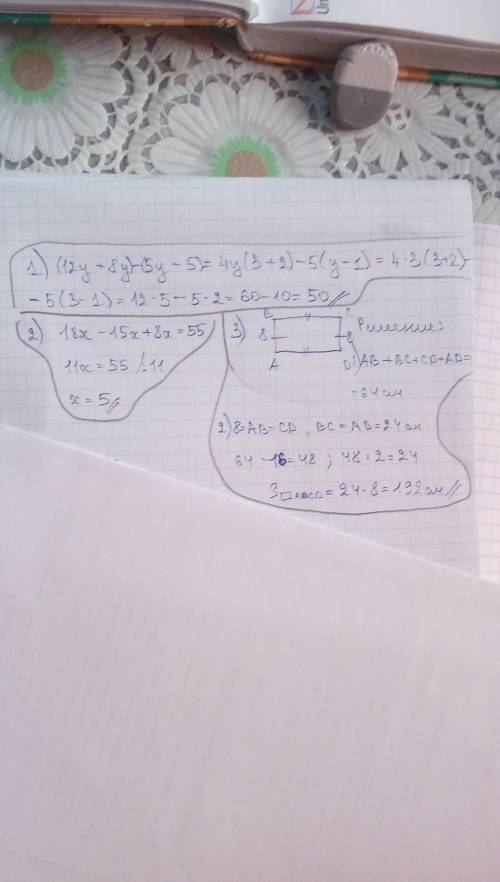 1) (12y + 8y) - (5y - 5) = 4y(3+2) - 5(y-1) = 4·3(3+2) -
- 5(3-1) = 12·5 - 5·2 = 60 - 10 = 50 //
2) 18x - 15x + 8x = 55
11x = 55 /:11
x = 5 //
3) Решение:
8
8
A
D
1) AB + BC + CD + AD =
= 64 см.
2) 8 = AB = CD, BC = AD = 24 см.
64 - 16 = 48 ; 48 : 2 = 24
= 24·8 = 192 см //